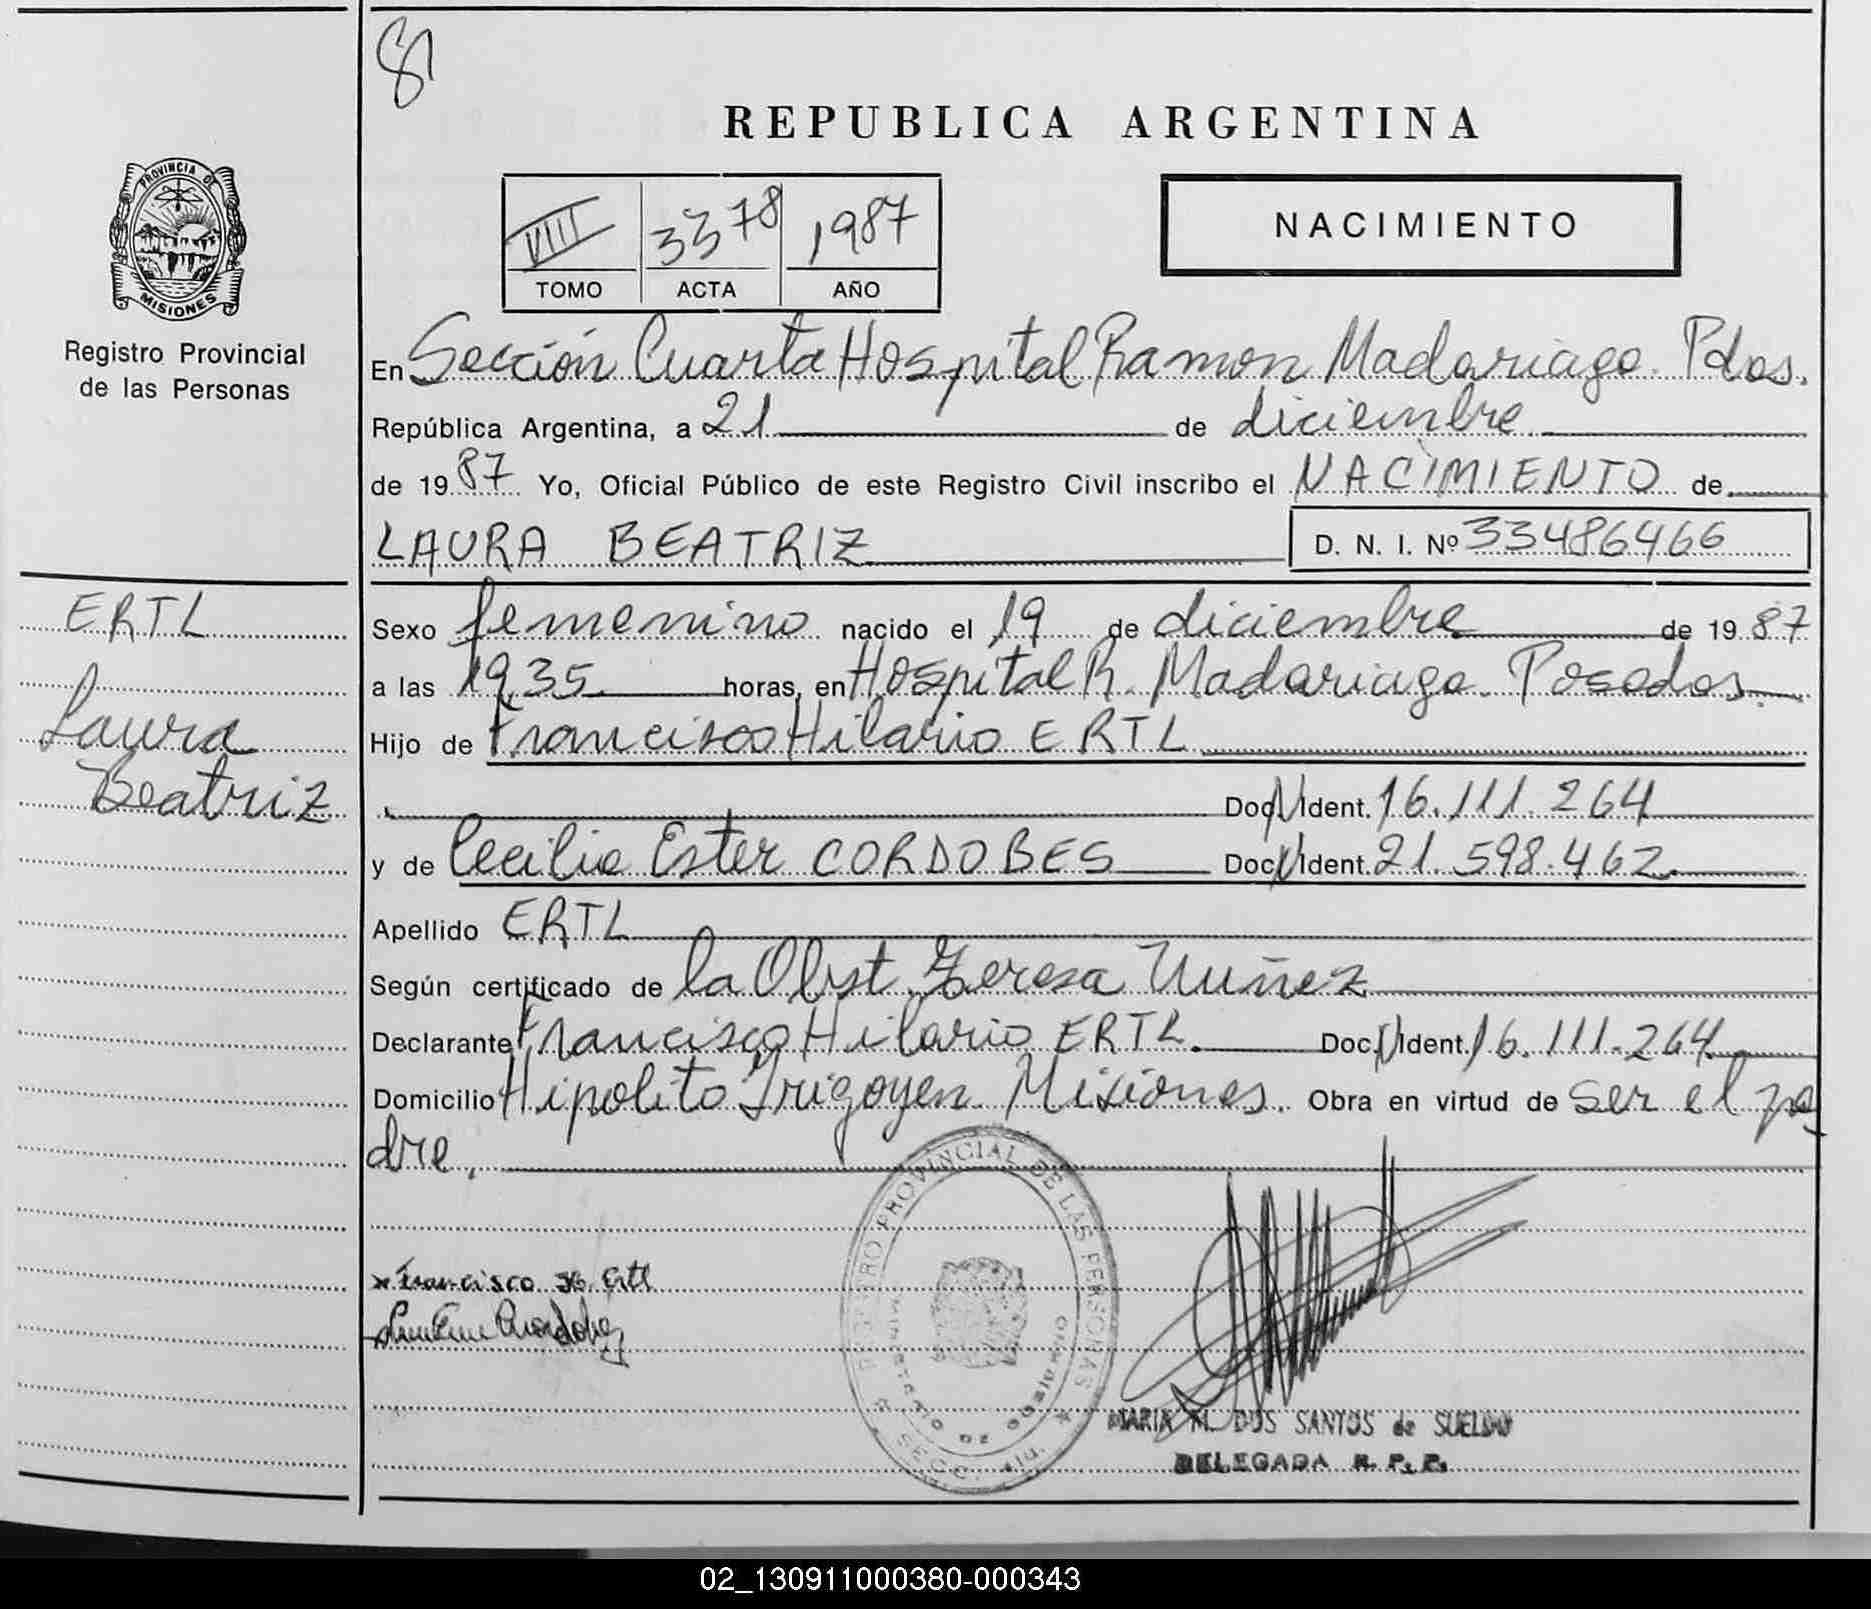 81
REPUBLICA ARGENTINA
PROVINCIA DE
MISIONES
Registro Provincial
de las Personas
VIII 3378 1987
TOMO ACTA AÑO
NACIMIENTO
En Sección Cuarta Hospital Ramon Madariaga. Pdas.
República Argentina, a 21 de diciembre
de 1987 Yo, Oficial Público de este Registro Civil inscribo el NACIMIENTO de
LAURA BEATRIZ D. N. I. Nº 33486466
ERTL
Laura
Beatriz
Sexo femenino nacido el 19 de diciembre de 1987
a las 19,35 horas, en Hospital R. Madariaga. Posadas.
Hijo de Francisco Hilario ERTL
Doc. Ident. 16.111.264
y de Cecilia Ester CORDOBES Doc. Ident. 21.598.462
Apellido ERTL
Según certificado de la Obst. Teresa Nuñez
Declarante Francisco Hilario ERTL. Doc. Ident. 16.111.264
Domicilio Hipolito Irigoyen. Misiones. Obra en virtud de ser el pa
dre.
REGISTRO PROVINCIAL DE LAS PERSONAS
MINISTERIO DE GOBIERNO
SECC. 4ta.
x Francisco H. Ertl
MARIA M. DOS SANTOS de SUELDO
DELEGADA R. P. P.
02_130911000380-000343